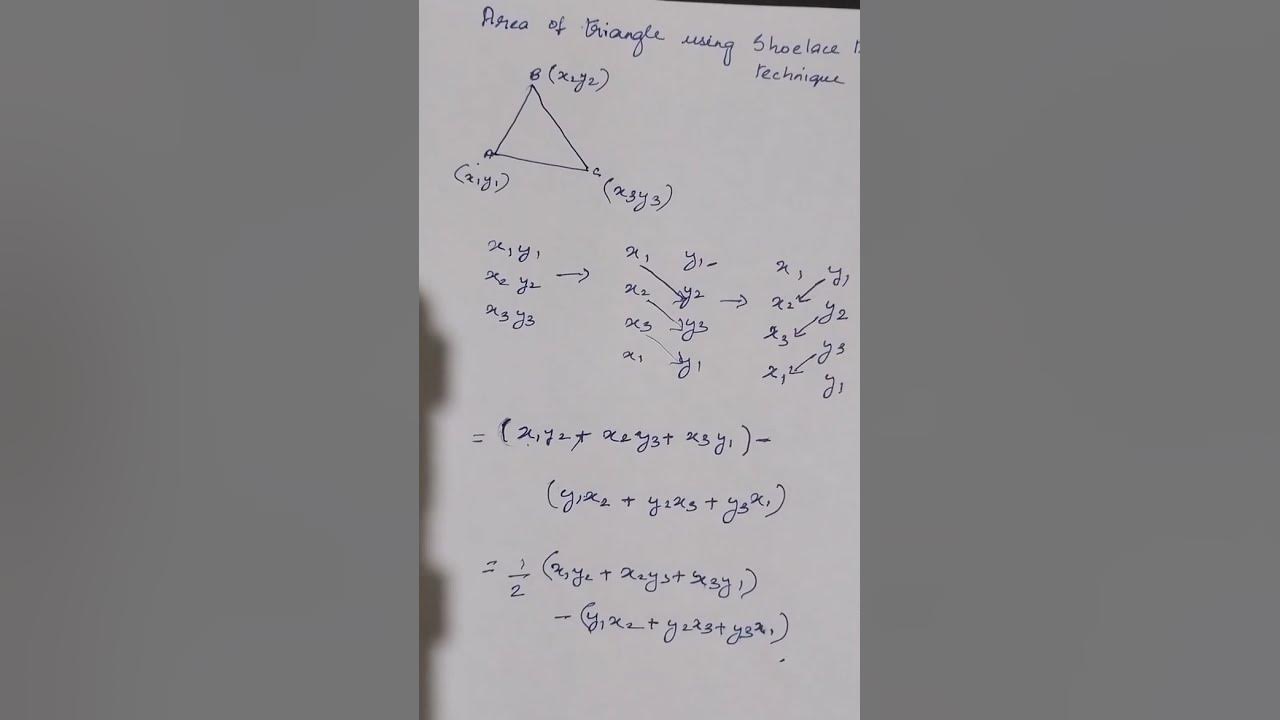 Area of triangle using Shoelace
technique
B (x₂y₂)
A
C
(x₁y₁)
(x₃y₃)
x₁y₁ x₁ y₁- x₁ y₁
x₂ y₂ → x₂ y₂ → x₂ y₂
x₃y₃ x₃ y₃ x₃ y₃
x₁ y₁ x₁ y₁
= (x₁y₂ + x₂y₃ + x₃y₁) -
(y₁x₂ + y₂x₃ + y₃x₁)
= 1/2 (x₁y₂ + x₂y₃ + x₃y₁)
- (y₁x₂ + y₂x₃ + y₃x₁)